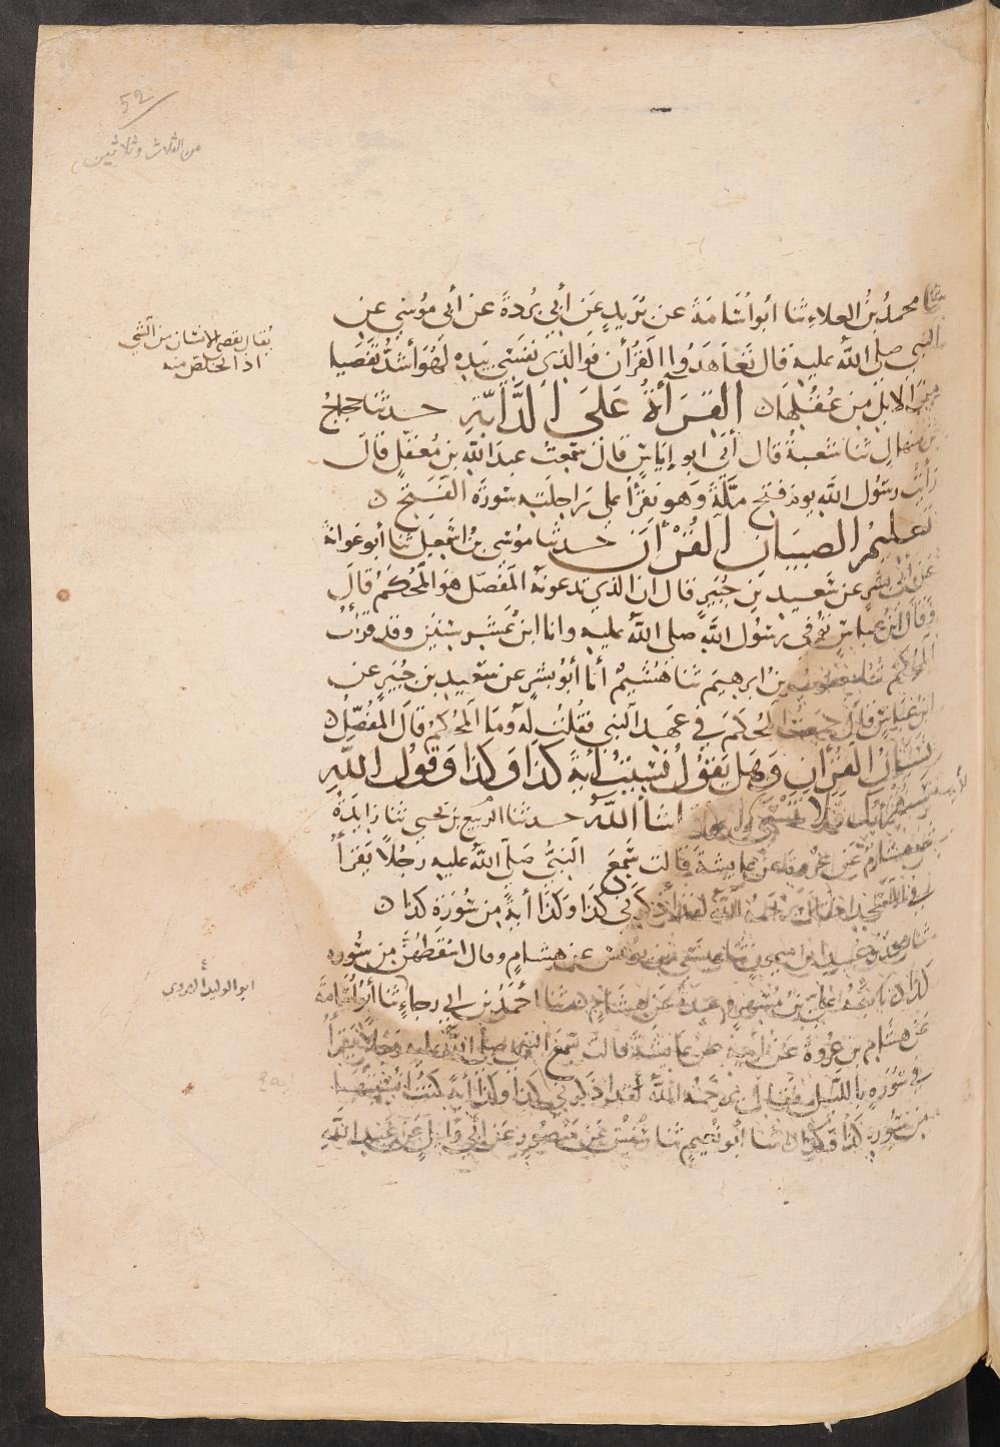 52
من الثلاث وثلاثين
محمد بن العلاء ثنا ابو اسامة عن بريد عن أبي بردة عن أبي موسى عن
النبي صلى الله عليه قال تعاهدوا القرأن فوالذي نفسي بيده لهو أشد تفصيا
يقال تفصى الانسان من الشي
اذا تخلص منه
من الابل من عقلها ن القرأة على الدابة حدثنا حجاج
بن منهال ثنا شعبة قال أنى ابو إياس قال سمعت عبد الله بن مغفل قال
رأيت رسول الله يوم فتح مكة وهو يقرأ على راحلته سورة الفتح ن
تعليم الصبيان القرأن حدثنا موسى بن اسمعيل ثنا أبو عوانة
عن أبي بشر عن سعيد بن جبير قال ان الذي تدعونه المفصل هو المحكم قال
وقال ابن عباس توفي رسول الله صلى الله عليه وانا ابن عشر سنين وقد قرأت
المحكم ثنا يعقوب بن ابرهيم ثنا هشيم أنا أبو بشر عن سعيد بن جبير عن
ابن عباس قال جمعت المحكم في عهد النبي فقلت له وما المحكم قال المفصل ن
نسيان القرأن وهل يقول نسيت أية كذا وكذا وقول الله
سنقرئك فلا تنسى الا ما شا الله حدثنا الربيع بن يحيى ثنا زايدة
هشام عن عروة عن عايشة قالت سمع النبي صلى الله عليه رجلا يقرأ
في المسجد فقال يرحمه الله لقد أذكرني كذا وكذا أية من سورة كذا ن
ثنا محمد بن عبيد ابن ميمون ثنا عيسى بن يونس عن هشام وقال اسقطهن من سورة
كذا ن تابعه علي بن مسهر وعبدة عن هشام ن ثنا احمد بن ابي رجاء ثنا أبو اسامة
ابو الوليد الهروي
عن هشام بن عروة عن ابيه عن عايشة قالت سمع النبي صلى الله عليه رجلا يقرأ
في سورة بالليل فقال يرحمه الله لقد اذكرني كذا وكذا أية كنت أنسيتها
من سورة كذا وكذا ن ثنا أبو نعيم ثنا سفين عن منصور عن أبي وايل عن عبد الله